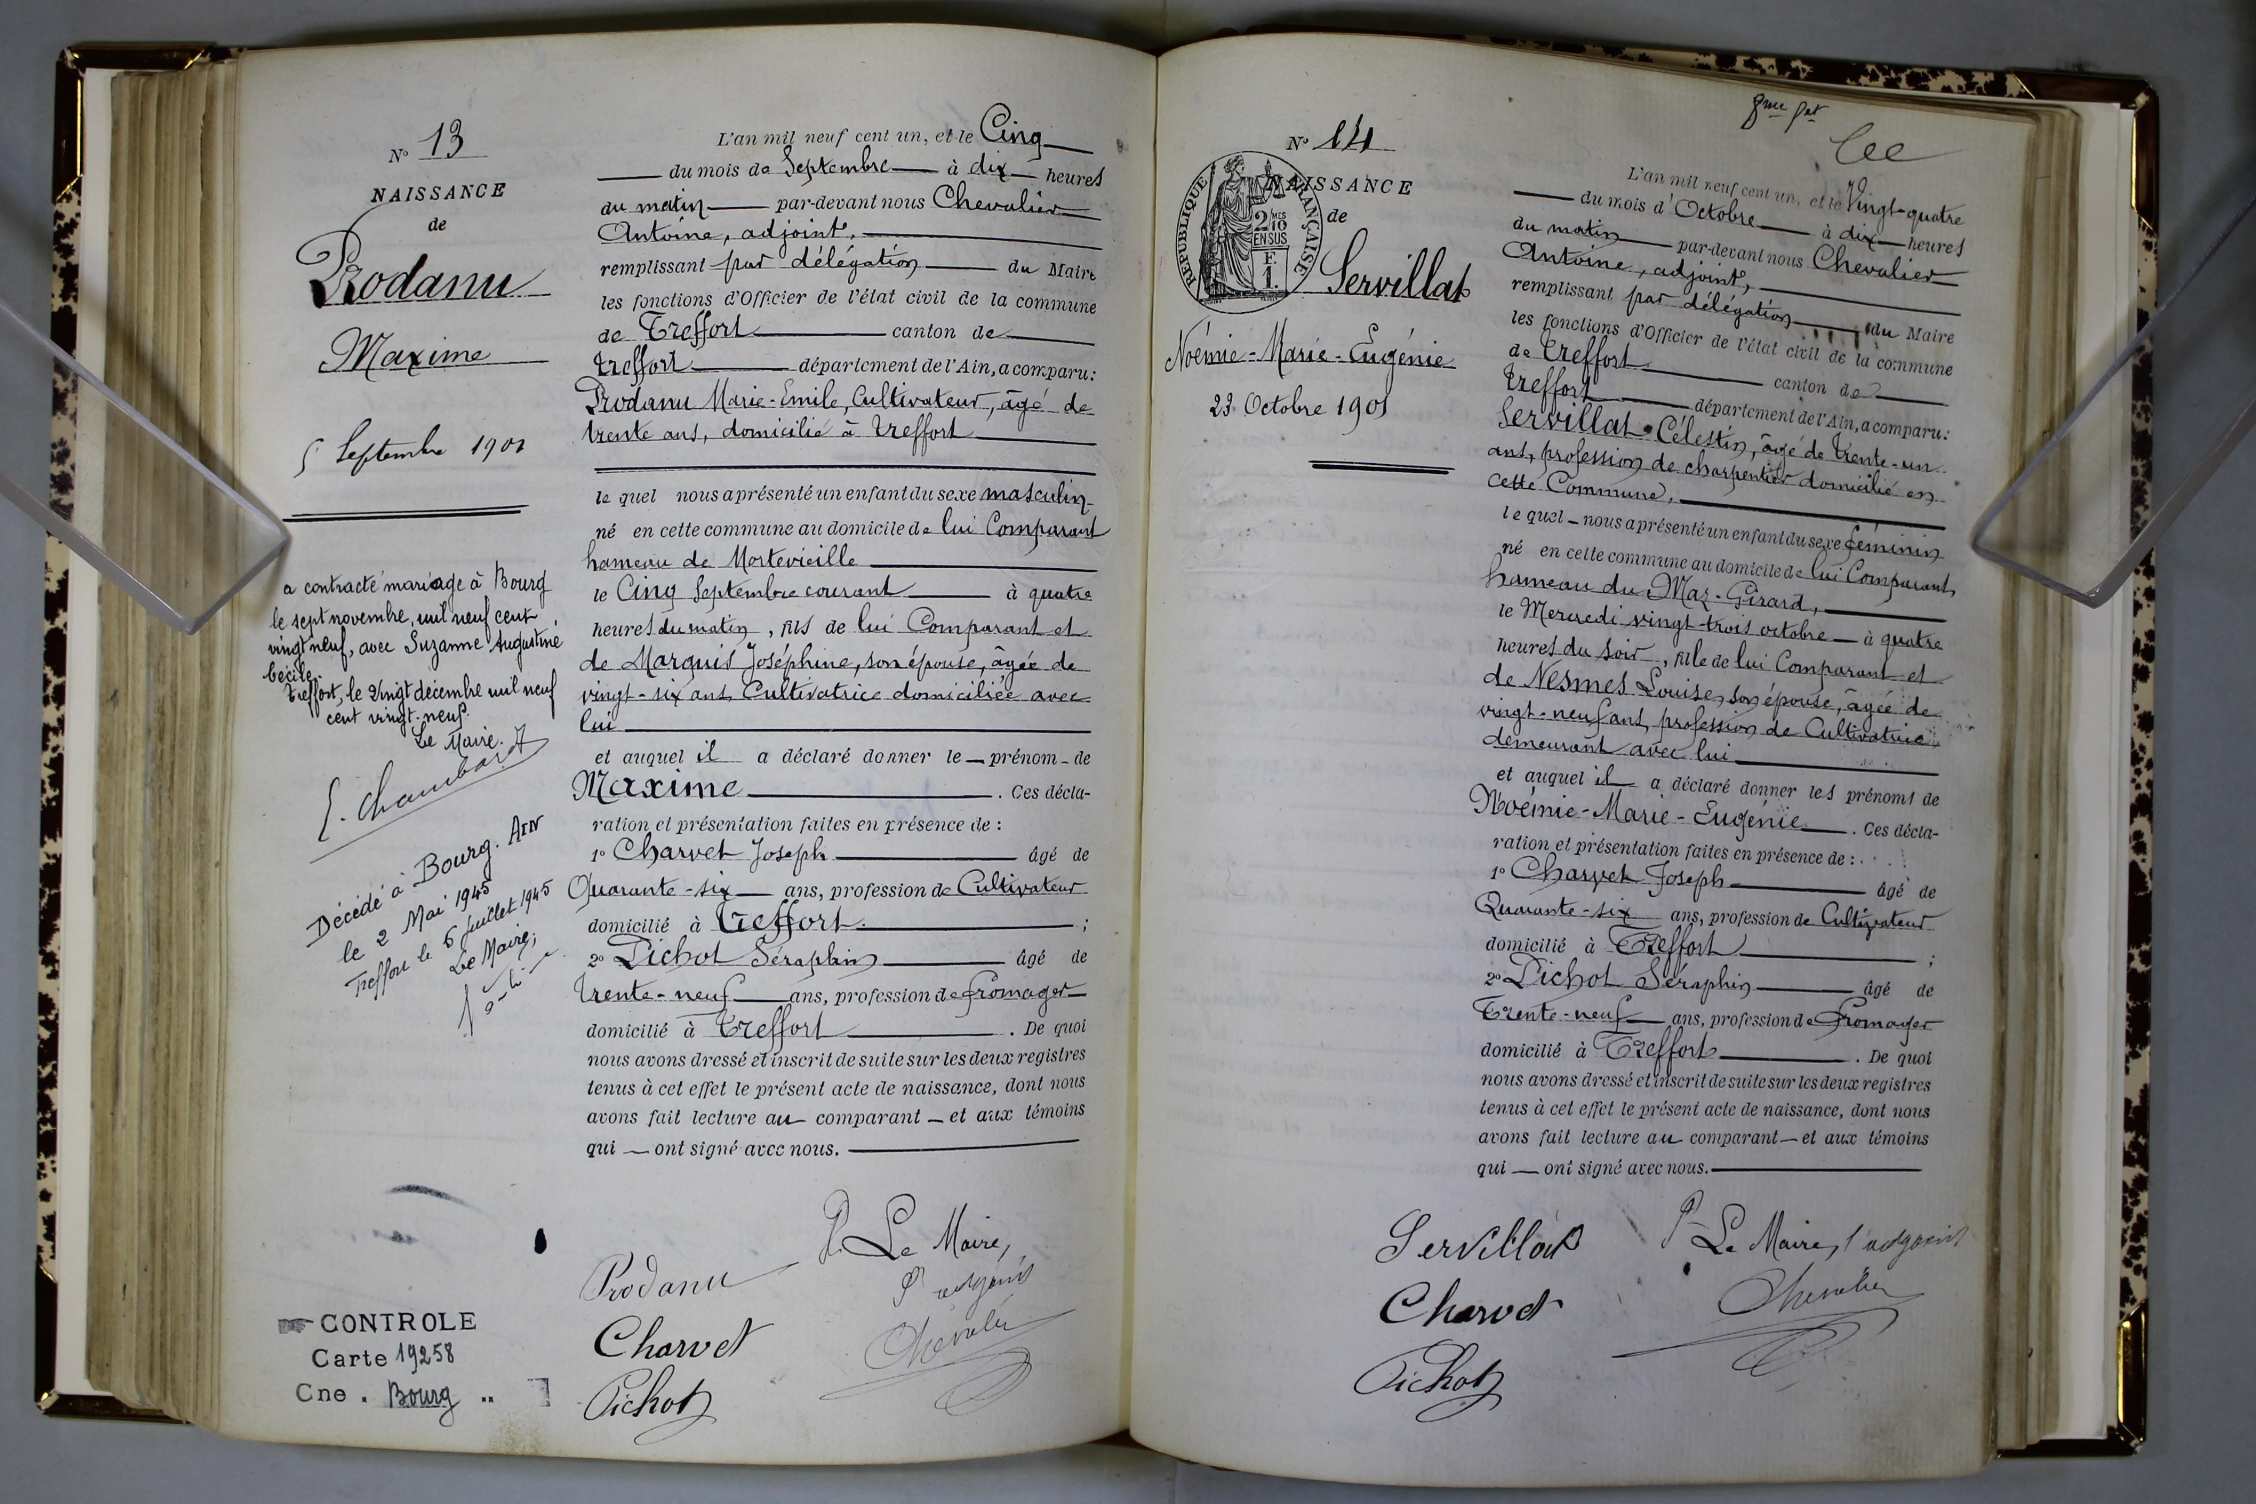 N° 13
NAISSANCE
de
Prodanu
Maxime
5 Septembre 1901
a contracté mariage à Bourg
le sept novembre, mil neuf cent
vingt neuf, avec Suzanne Augustine
Cécile.
Treffort, le vingt décembre mil neuf
cent vingt-neuf.
Le Maire.
E. Chambard
Décédé à Bourg. Ain
le 2 Mai 1945
Treffort le 6 Juillet 1945
Le Maire;
CONTROLE
Carte 19258
Cne. Bourg
L'an mil neuf cent un, et le Cinq
du mois de Septembre à dix heures
du matin par-devant nous Chevalier
Antoine, adjoint,
remplissant par délégation du Maire
les fonctions d'Officier de l'état civil de la commune
de Treffort canton de
Treffort département de l'Ain, a comparu:
Prodanu Marie-Emile, Cultivateur, âgé de
trente ans, domicilié à Treffort
le quel nous a présenté un enfant du sexe masculin
né en cette commune au domicile de lui Comparant
hameau de Mortevieille
le Cinq Septembre courant à quatre
heures du matin, fils de lui Comparant et
de Marquis Joséphine, son épouse, âgée de
vingt-six ans, Cultivatrice domiciliée avec
lui
et auquel il a déclaré donner le prénom de
Maxime. Ces décla-
ration et présentation faites en présence de:
1° Charvet Joseph âgé de
Quarante-six ans, profession de Cultivateur
domicilié à Treffort;
2° Pichot Séraphin âgé de
trente-neuf ans, profession de fromager
domicilié à Treffort. De quoi
nous avons dressé et inscrit de suite sur les deux registres
tenus à cet effet le présent acte de naissance, dont nous
avons fait lecture au comparant et aux témoins
qui ont signé avec nous.
P. Le Maire,
l'adjoint
Prodanu
Charvet
Chevalier
Pichot
8me fet
N° 14
NAISSANCE
de
RÉPUBLIQUE FRANÇAISE
2/10 MES
EN SUS
F.
1.
Servillat
Noémie-Marie-Eugénie
23 Octobre 1901
L'an mil neuf cent un, et le Vingt-quatre
du mois d'Octobre à dix heures
du matin par-devant nous Chevalier
Antoine, adjoint,
remplissant par délégation du Maire
les fonctions d'Officier de l'état civil de la commune
de Treffort canton de
Treffort département de l'Ain, a comparu:
Servillat Célestin, âgé de trente-un
ans, profession de charpentier domicilié en
cette Commune,
le quel nous a présenté un enfant du sexe féminin
né en cette commune au domicile de lui Comparant,
hameau du Maz-Girard,
le Mercredi vingt-trois octobre à quatre
heures du soir, fille de lui Comparant et
de Nesmes Louise, son épouse, âgée de
vingt-neuf ans, profession de Cultivatrice
demeurant avec lui
et auquel il a déclaré donner les prénoms de
Noémie-Marie-Eugénie. Ces décla-
ration et présentation faites en présence de:
1° Charvet Joseph âgé de
Quarante-six ans, profession de Cultivateur
domicilié à Treffort;
2° Pichot Séraphin âgé de
Trente-neuf ans, profession de Fromager
domicilié à Treffort. De quoi
nous avons dressé et inscrit de suite sur les deux registres
tenus à cet effet le présent acte de naissance, dont nous
avons fait lecture au comparant et aux témoins
qui ont signé avec nous.
Servillat
Pr Le Maire, l'adjoint
Charvet
Chevalier
Pichot